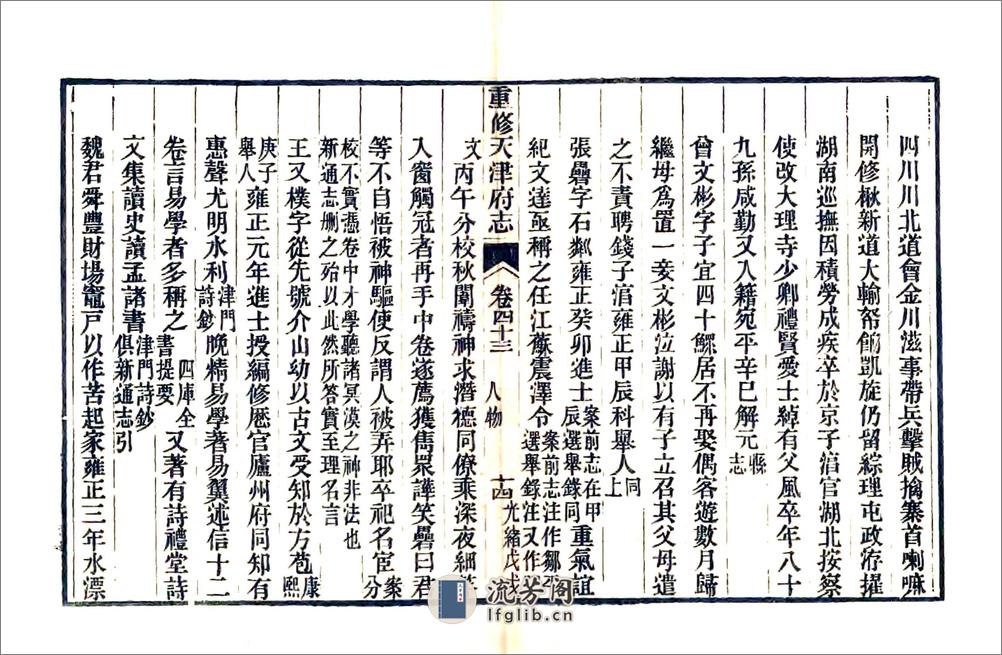 四川川北道會金川滋事帶兵擊賊擒寨首喇嘛
開修楸新道大輸帑餉凱旋仍留綜理屯政洊擢
湖南巡撫因積勞成疾卒於京子涫官湖北按察
使改大理寺少卿禮賢愛士綽有父風卒年八十
九孫咸勤又入籍宛平辛巳解元縣志
曾文彬字子宜四十鰥居不再娶偶客遊數月歸
繼母爲置一妾文彬泣謝以有子立召其父母遣
之不責聘錢子涫雍正甲辰科舉人同上
張曡字石鄰雍正癸卯進士案前志在甲辰選舉錄同重氣誼
紀文達亟稱之任江蘇震澤令案前志注作鄒平選舉錄注又作
文丙午分校秋闈禱神求潛德同僚乘深夜細
重修天津府志
卷四十三
人物
十四
光緒戊戌
入窗觸冠者再手中卷遂薦獲雋眾譁笑曡曰君
等不自悟被神驅使反謂人被弄耶卒祀名宦案分
校不實憑卷中才學聽諸冥漠之神非法也
新通志刪之殆以此然所答實至理名言
王又樸字從先號介山幼以古文受知於方苞康熙
庚子舉人雍正元年進士授編修歷官廬州府同知有
惠聲尤明水利津門詩鈔晚精易學著易翼述信十二
卷言易學者多稱之四庫全書提要又著有詩禮堂詩
文集讀史讀孟諸書津門詩鈔俱新通志引
魏君舜豐財場竈戸以作苦起家雍正三年水漂
流芳阁
lfglib.cn